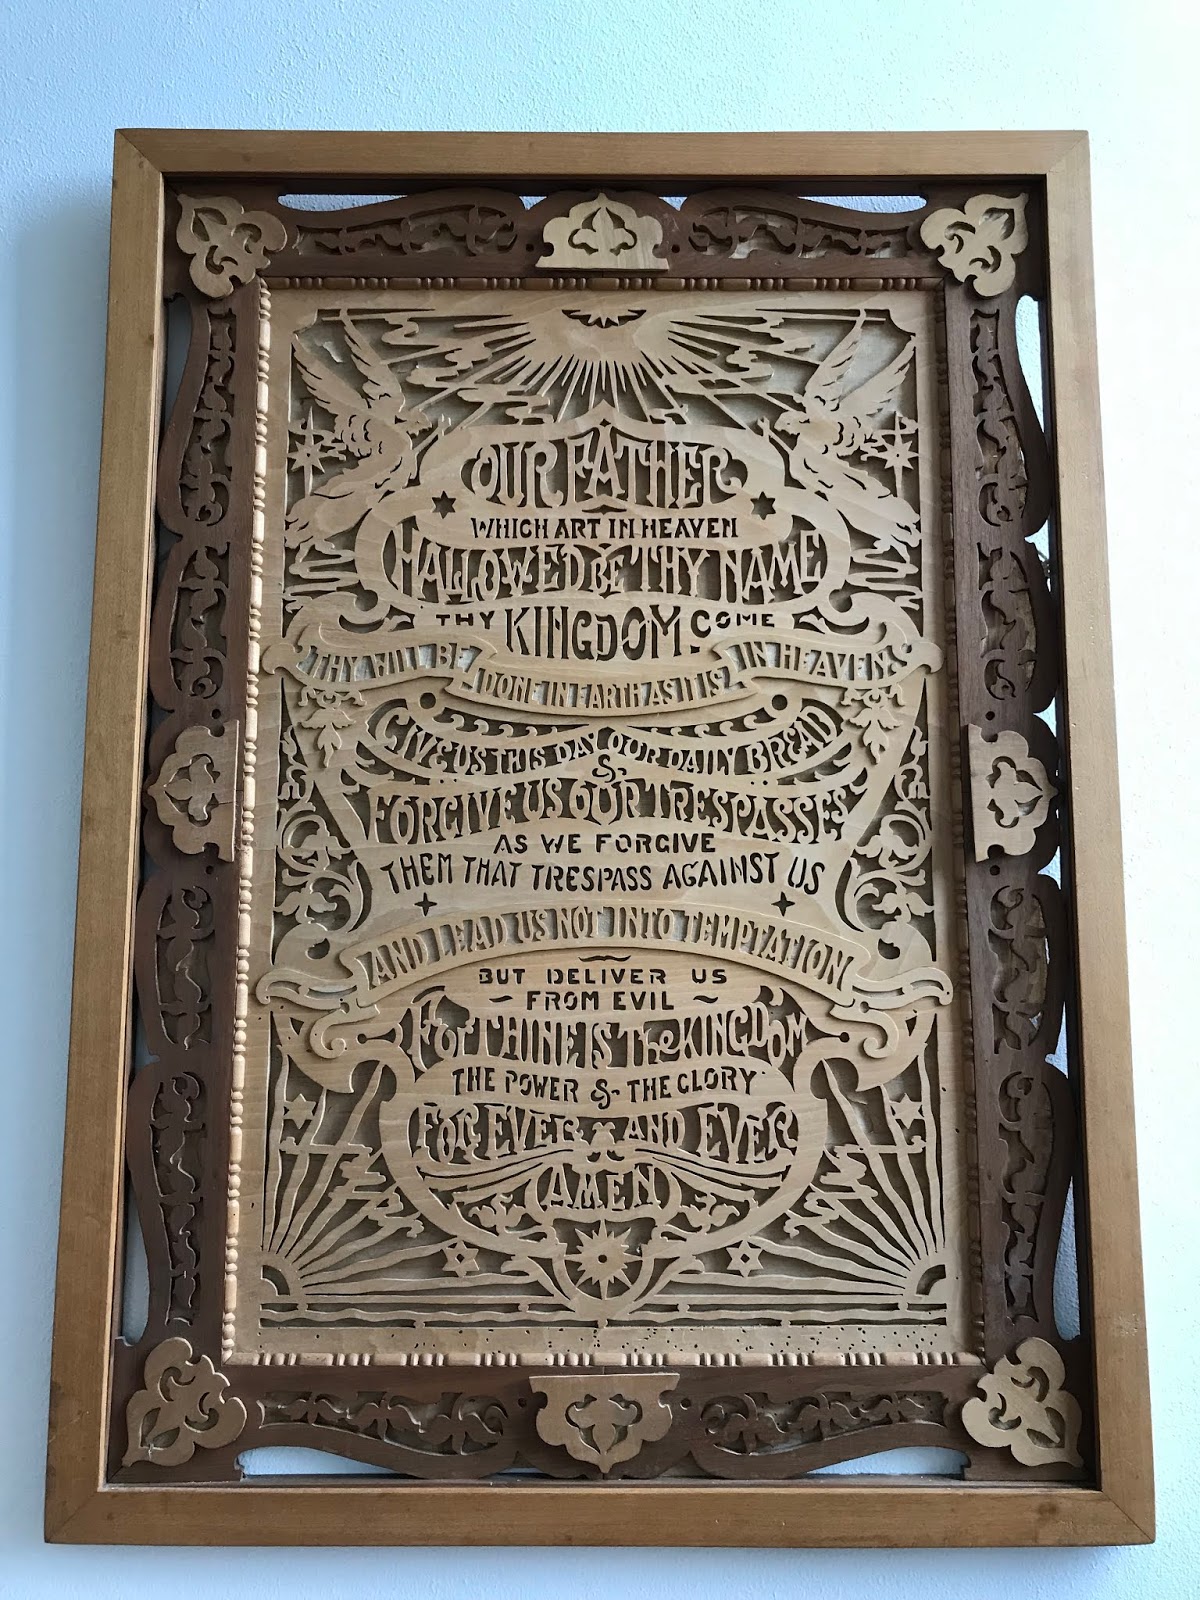 OUR FATHER
WHICH ART IN HEAVEN
HALLOWED BE THY NAME
THY KINGDOM COME
THY WILL BE DONE IN EARTH AS IT IS IN HEAVEN
GIVE US THIS DAY OUR DAILY BREAD
&
FORGIVE US OUR TRESPASSES
AS WE FORGIVE
THEM THAT TRESPASS AGAINST US
AND LEAD US NOT INTO TEMPTATION
BUT DELIVER US
~ FROM EVIL ~
FOR THINE IS The KINGDOM
THE POWER & THE GLORY
FOR EVER AND EVER
AMEN